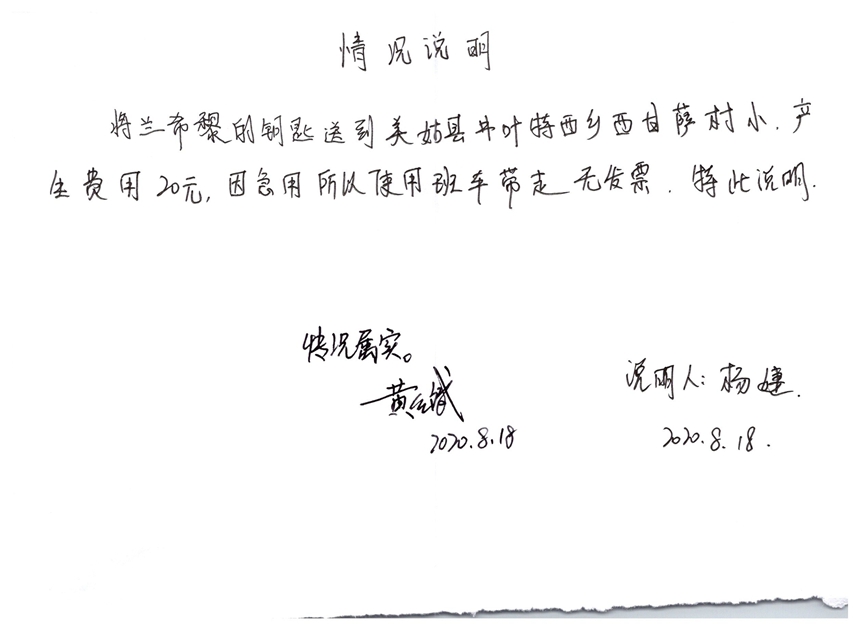 情况说明
将兰希黎的钥匙送到美姑县井叶特西乡西甘萨村小.产
生费用20元,因急用所以使用班车带走无发票.特此说明.
情况属实。
说明人:杨婕.
黄
2020.8.18
2020.8.18.